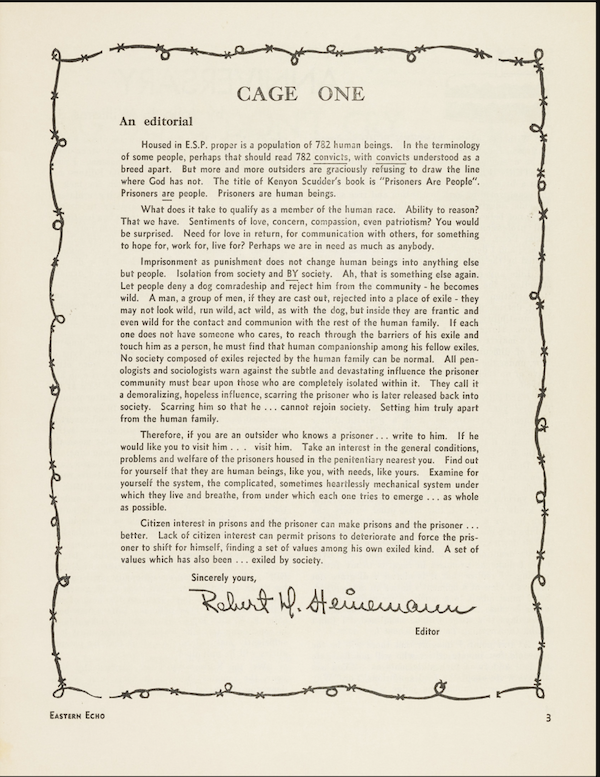 CAGE ONE
An editorial
Housed in E.S.P. proper is a population of 782 human beings. In the terminology
of some people, perhaps that should read 782 convicts, with convicts understood as a
breed apart. But more and more outsiders are graciously refusing to draw the line
where God has not. The title of Kenyon Scudder's book is "Prisoners Are People".
Prisoners are people. Prisoners are human beings.
What does it take to qualify as a member of the human race. Ability to reason?
That we have. Sentiments of love, concern, compassion, even patriotism? You would
be surprised. Need for love in return, for communication with others, for something
to hope for, work for, live for? Perhaps we are in need as much as anybody.
Imprisonment as punishment does not change human beings into anything else
but people. Isolation from society and BY society. Ah, that is something else again.
Let people deny a dog comradeship and reject him from the community - he becomes
wild. A man, a group of men, if they are cast out, rejected into a place of exile - they
may not look wild, run wild, act wild, as with the dog, but inside they are frantic and
even wild for the contact and communion with the rest of the human family. If each
one does not have someone who cares, to reach through the barriers of his exile and
touch him as a person, he must find that human companionship among his fellow exiles.
No society composed of exiles rejected by the human family can be normal. All pen-
ologists and sociologists warn against the subtle and devastating influence the prisoner
community must bear upon those who are completely isolated within it. They call it
a demoralizing, hopeless influence, scarring the prisoner who is later released back into
society. Scarring him so that he ... cannot rejoin society. Setting him truly apart
from the human family.
Therefore, if you are an outsider who knows a prisoner ... write to him. If he
would like you to visit him . . . visit him. Take an interest in the general conditions,
problems and welfare of the prisoners housed in the penitentiary nearest you. Find out
for yourself that they are human beings, like you, with needs, like yours. Examine for
yourself the system, the complicated, sometimes heartlessly mechanical system under
which they live and breathe, from under which each one tries to emerge ... as whole
as possible.
Citizen interest in prisons and the prisoner can make prisons and the prisoner ...
better. Lack of citizen interest can permit prisons to deteriorate and force the pris-
oner to shift for himself, finding a set of values among his own exiled kind. A set of
values which has also been ... exiled by society.
Sincerely yours,
Robert W. Heinemann
Editor
EASTERN ECHO
3